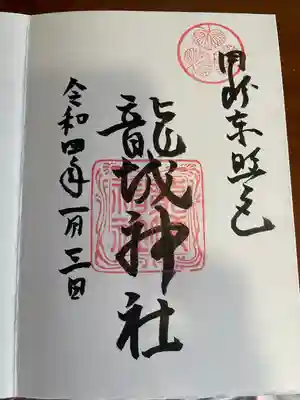 岡崎東照宮
龍城神社
令和四年一月三日